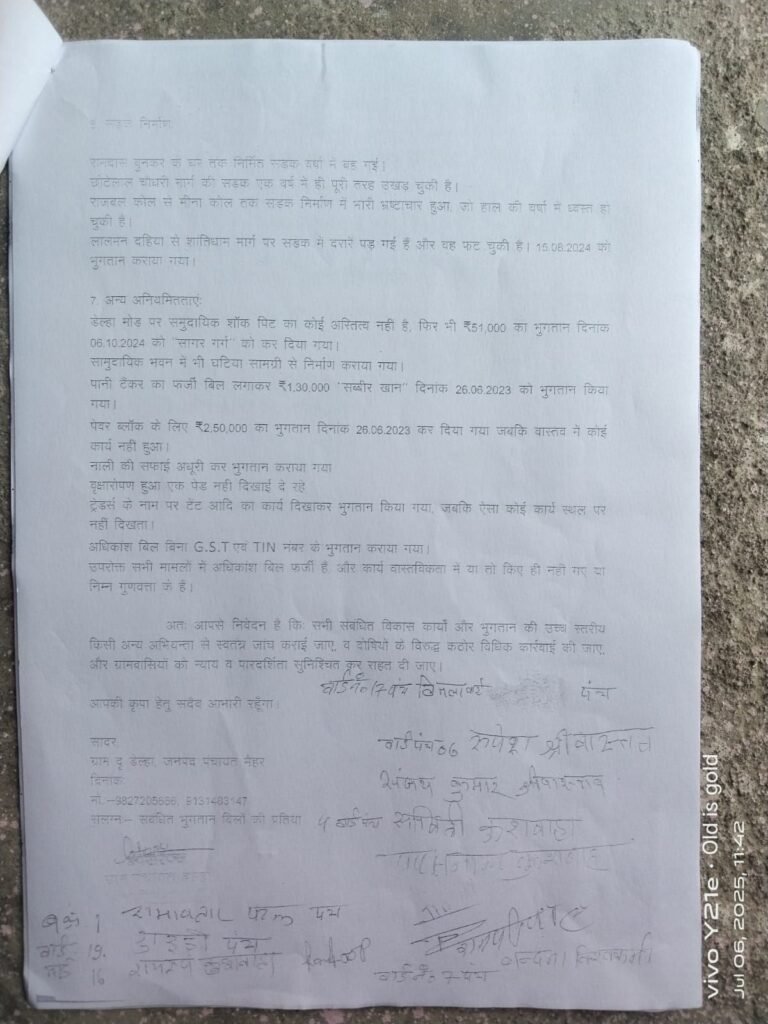 सड़क निर्माण:
रामदास बुनकर के घर तक निर्मित सड़क वर्षा में बह गई।
छोटेलाल चौधरी मार्ग की सड़क एक वर्ष में ही पूरी तरह उखड़ चुकी है।
राजबल कोल से मीना कोल तक सड़क निर्माण में भारी भ्रष्टाचार हुआ, जो हाल की वर्षा में ध्वस्त हो
चुकी है।
लालमन दहिया से शांतिधाम मार्ग पर सड़क में दरारें पड़ गई हैं और वह फट चुकी है। 15.08.2024 को
भुगतान कराया गया।
7. अन्य अनियमितताएं:
डेल्हा मोड़ पर समुदायिक शॉक पिट का कोई अस्तित्व नहीं है, फिर भी ₹51,000 का भुगतान दिनांक
06.10.2024 को "सागर गर्ग" को कर दिया गया।
सामुदायिक भवन में भी घटिया सामग्री से निर्माण कराया गया।
पानी टैंकर का फर्जी बिल लगाकर ₹1,30,000 "सब्बीर खान" दिनांक 26.06.2023 को भुगतान किया
गया।
पेवर ब्लॉक के लिए ₹2,50,000 का भुगतान दिनांक 26.06.2023 कर दिया गया जबकि वास्तव में कोई
कार्य नहीं हुआ।
नाली की सफाई अधूरी कर भुगतान कराया गया
वृक्षारोपण हुआ एक पेड़ नही दिखाई दे रहे
ट्रेडर्स के नाम पर टेंट आदि का कार्य दिखाकर भुगतान किया गया, जबकि ऐसा कोई कार्य स्थल पर
नहीं दिखता।
अधिकांश बिल बिना G.S.T एवं TIN नंबर के भुगतान कराया गया।
उपरोक्त सभी मामलों में अधिकांश बिल फर्जी हैं, और कार्य वास्तविकता में या तो किए ही नहीं गए या
निम्न गुणवत्ता के हैं।
अतः आपसे निवेदन है कि: सभी संबंधित विकास कार्यों और भुगतान की उच्च स्तरीय
किसी अन्य अभियन्ता से स्वतंत्र जांच कराई जाए, व दोषियों के विरुद्ध कठोर विधिक कार्रवाई की जाए,
और ग्रामवासियों को न्याय व पारदर्शिता सुनिश्चित कर राहत दी जाए।
वार्ड नं० 17 पंच विमला पंच
आपकी कृपा हेतु सदैव आभारी रहूँगा।
सादर,
वार्ड पंच 06 रुपेश श्रीवास्तव
ग्राम डेल्हा, जनपद पंचायत मैहर
दिनांक:
संजय कुमार श्रीवास्तव
मो.–9827205686, 9131483147
संलग्न:– संबंधित भुगतान बिलों की प्रतियां
4 वार्ड पंच सावित्री कुशवाहा
1 रामावतार पंच
वार्ड 19. पंच
वार्ड 16 रामरूप कुशवाहा
वन्दना विश्वकर्मा
वार्ड नं० 7 पंच
vivo Y21e · Old is gold
Jul 06, 2025, 11:42